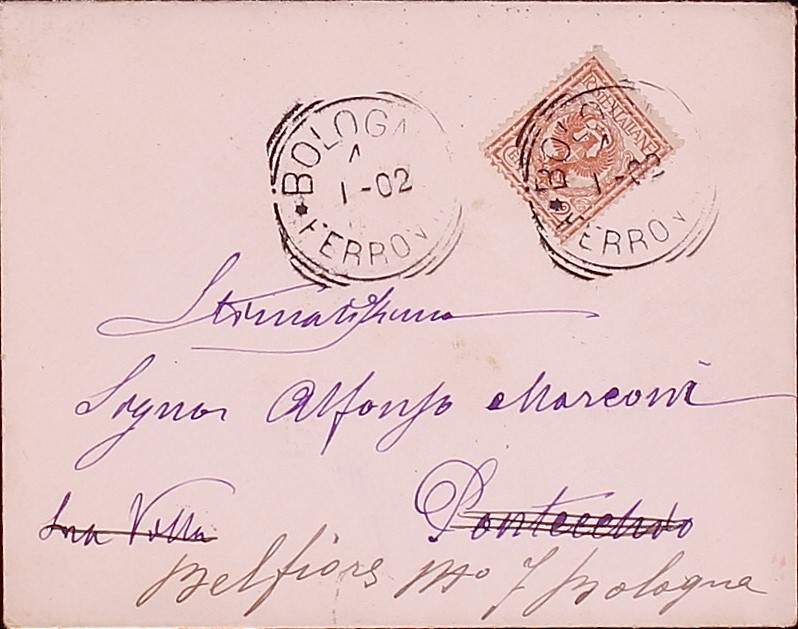 BOLOGN
1
1-02
* FERROV
POSTE ITALIANE
BOLOG
1
1-02
* FERROV
Stimatissimo
Signor Alfonso Marconi
Sua Villa Pontecchio
Belfiore No 7 Bologna